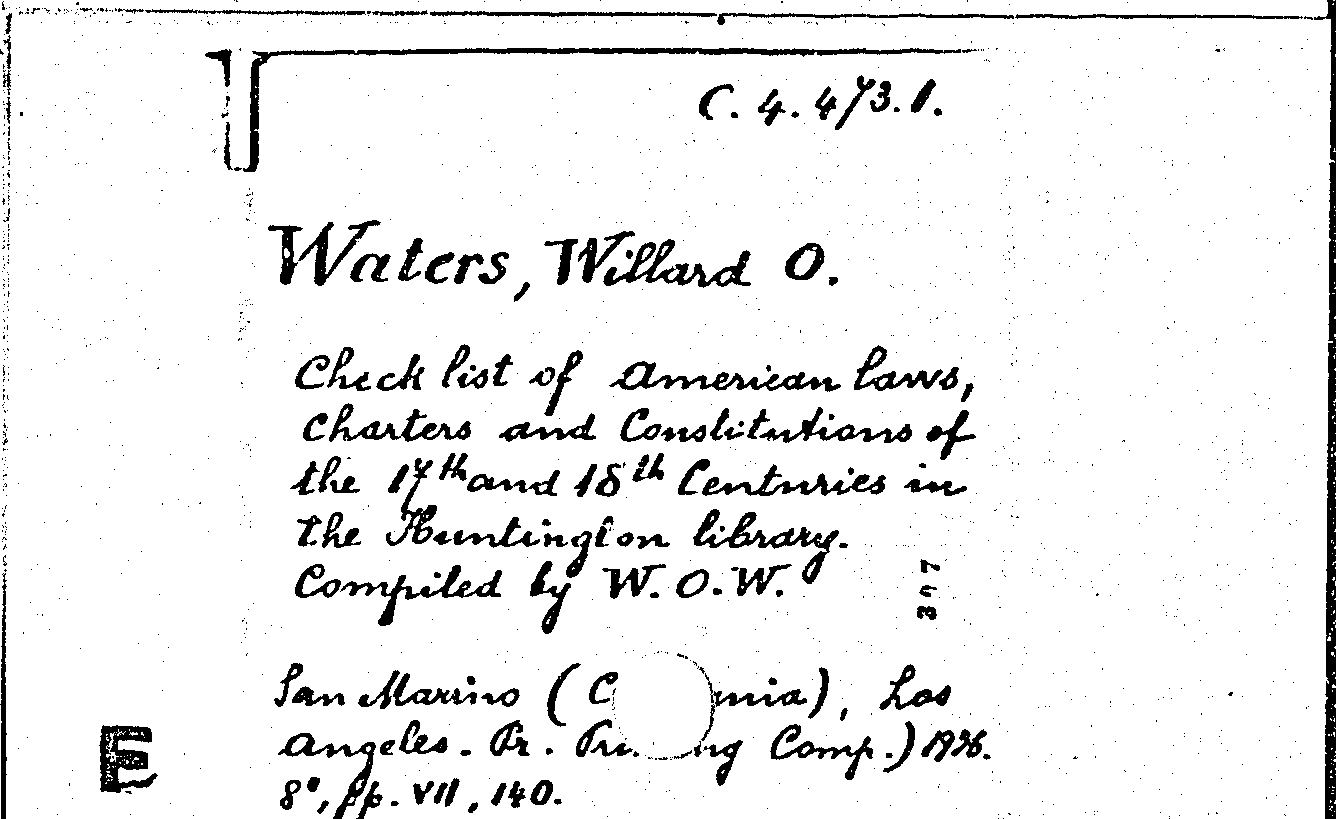 C. 4. 473. 1.
Waters, Willard O.
Check list of American laws,
Charters and Constitutions of
the 17th and 18th Centuries in
the Huntington library.
Compiled by W. O. W.
397
San Marino ( C nia), Los
Angeles. Pr. ng Comp.) 1936.
E
8°, pp. VII, 140.